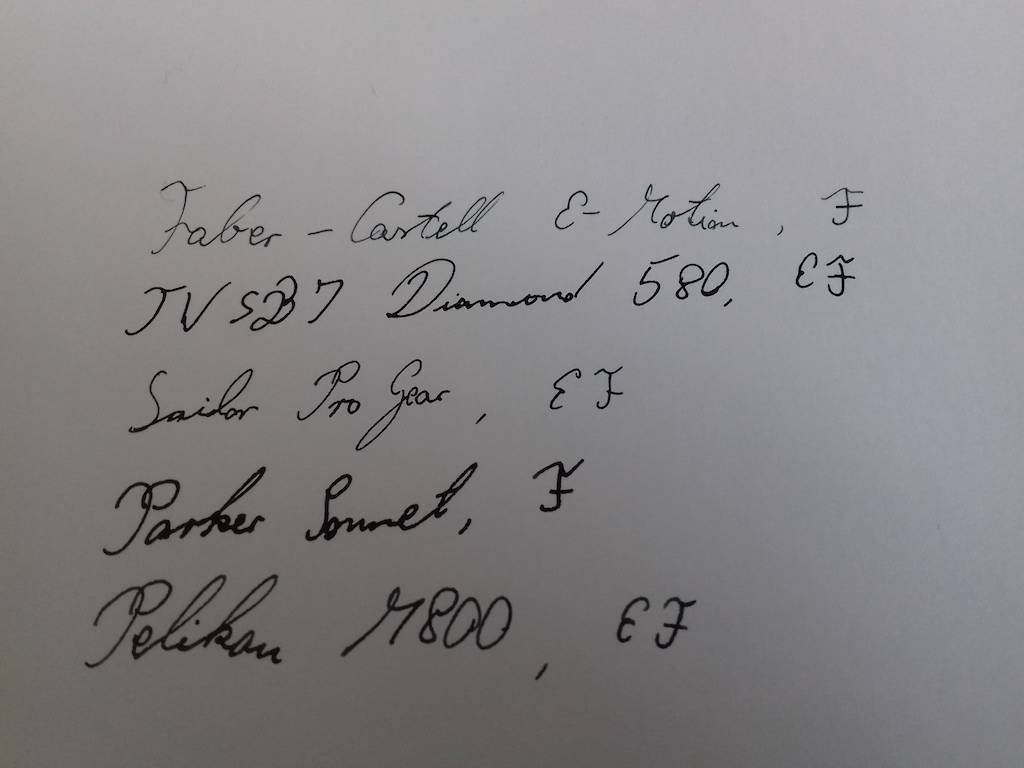 Faber-Castell E-Motion, F
TWSBI Diamond 580, EF
Sailor Pro Gear, EF
Parker Sonnet, F
Pelikan M800, EF